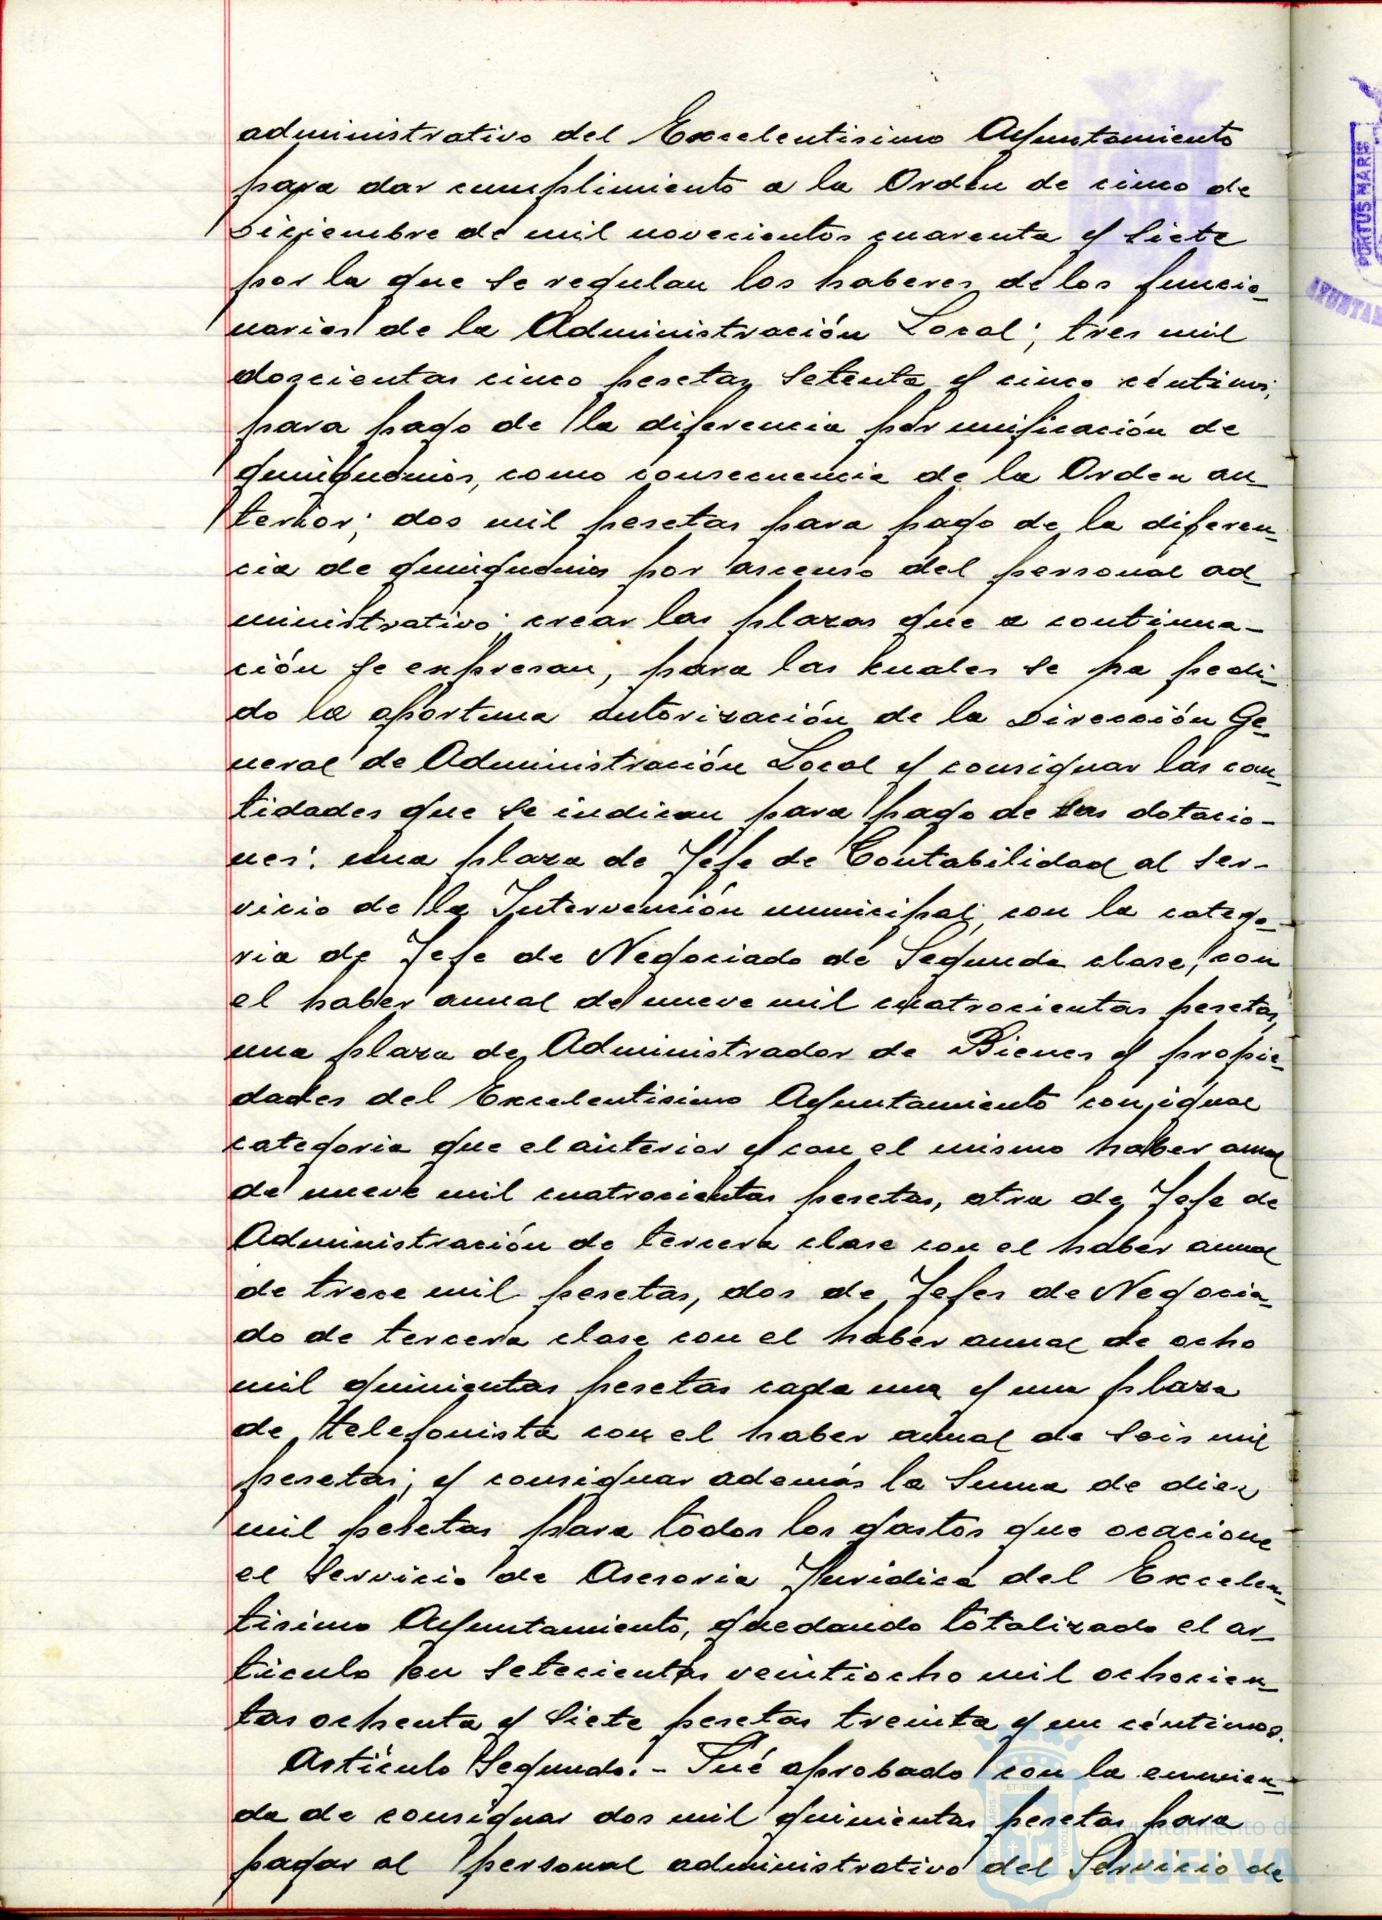 administrativo del Excelentisimo Ayuntamiento
para dar cumplimiento a la Orden de cinco de
Diciembre de mil novecientos cuarenta y siete
por la que se regulan los haberes de los funcio-
narios de la Administración Local; tres mil
doscientas cinco pesetas setenta y cinco céntimos,
para pago de la diferencia por unificación de
quinquenios, como consecuencia de la Orden an-
terior; dos mil pesetas para pago de la diferen-
cia de quinquenios por ascenso del personal ad-
ministrativo; crear las plazas que a continua-
ción se expresan, para las kuales se ha pedi-
do la oportuna autorización de la Dirección Ge-
neral de Administración Local y consignar las can-
tidades que se indican para pago de las dotacio-
nes: una plaza de Jefe de Contabilidad al ser-
vicio de la Intervención municipal, con la catego-
ria de Jefe de Negociado de Segunda clase, con
el haber anual de nueve mil cuatrocientas pesetas,
una plaza de Administrador de Bienes y propie-
dades del Excelentisimo Ayuntamiento con igual
categoria que el anterior y con el mismo haber anual
de nueve mil cuatrocientas pesetas, otra de Jefe de
Administración de tercera clase con el haber anual
de trece mil pesetas, dos de Jefes de Negocia-
do de tercera clase con el haber anual de ocho
mil quinientas pesetas cada una y una plaza
de telefonista con el haber anual de seis mil
pesetas; y consignar además la suma de diez
mil pesetas para todos los gastos que ocacione
el Servicio de Asesoria Juridica del Excelen-
tisimo Ayuntamiento, quedando totalizado el ar-
ticulo en setecientas veintiocho mil ochocien-
tas ochenta y siete pesetas treinta y un céntimos.
Artículo Segundo.- Fué aprobado con la enmien-
da de consignar dos mil quinientas pesetas para
pagar al personal administrativo del Servicio de
PORTUS MARIS
Ayuntamiento de
HUELVA